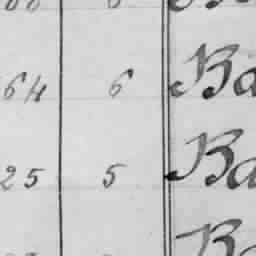 64 6 Ba
25 5 Ba